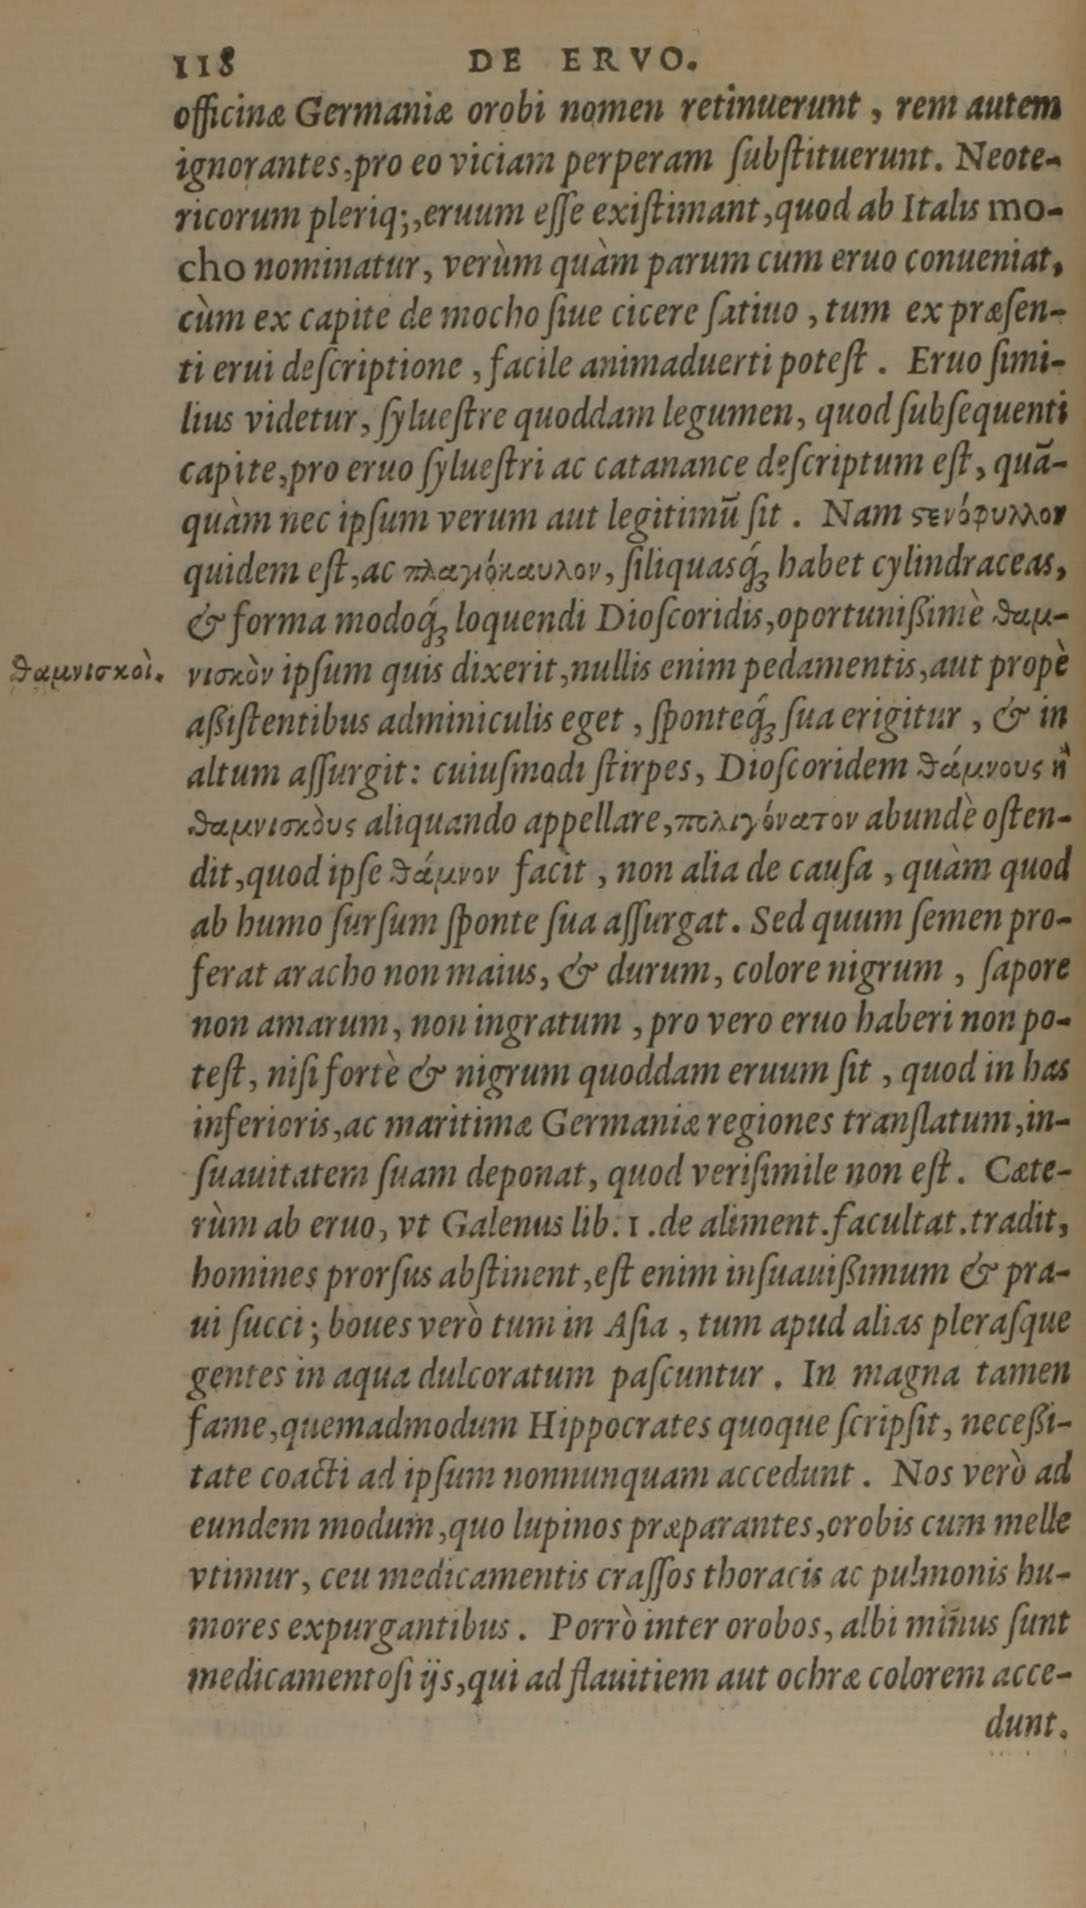 118 DE ERVO.
officinæ Germaniæ orobi nomen retinuerunt, rem autem
ignorantes, pro eo viciam perperam ſubſtituerunt. Neote-
ricorum pleriq;, eruum eſſe exiſtimant, quod ab Italis mo-
cho nominatur, verùm quàm parum cum eruo conueniat,
cùm ex capite de mocho ſiue cicere ſatiuo, tum ex præſen-
ti erui deſcriptione, facile animaduerti poteſt. Eruo ſimi-
lius videtur, ſylueſtre quoddam legumen, quod ſubſequenti
capite, pro eruo ſylueſtri ac catanance deſcriptum eſt, quā-
quàm nec ipſum verum aut legitimū ſit. Nam ϛενόφυλλον
quidem eſt, ac πλαγιόκαυλον, ſiliquasq́ꝫ habet cylindraceas,
& forma modoq́ꝫ loquendi Dioſcoridis, oportunißimè θαμ-
θαμνισκοὶ.
νισκὸν ipſum quis dixerit, nullis enim pedamentis, aut propè
aßiſtentibus adminiculis eget, ſponteq́ꝫ ſua erigitur, & in
altum aſſurgit: cuiuſmodi ſtirpes, Dioſcoridem θάμνους ἢ
θαμνισκὸυς aliquando appellare, πολιγόνατον abundè oſten-
dit, quod ipſe θάμνον facit, non alia de cauſa, quàm quod
ab humo ſurſum ſponte ſua aſſurgat. Sed quum ſemen pro-
ferat aracho non maius, & durum, colore nigrum, ſapore
non amarum, non ingratum, pro vero eruo haberi non po-
teſt, niſi fortè & nigrum quoddam eruum ſit, quod in has
inferioris, ac maritimæ Germaniæ regiones tranſlatum, in-
ſuauitatem ſuam deponat, quod veriſimile non eſt. Cæte-
rùm ab eruo, vt Galenus lib. 1. de aliment. facultat. tradit,
homines prorſus abſtinent, eſt enim inſuauißimum & pra-
ui ſucci; boues verò tum in Aſia, tum apud alias pleraſque
gentes in aqua dulcoratum paſcuntur. In magna tamen
fame, quemadmodum Hippocrates quoque ſcripſit, neceßi-
tate coacti ad ipſum nonnunquam accedunt. Nos verò ad
eundem modum, quo lupinos præparantes, orobis cum melle
vtimur, ceu medicamentis craſſos thoracis ac pulmonis hu-
mores expurgantibus. Porrò inter orobos, albi minus ſunt
medicamentoſi ijs, qui ad flauitiem aut ochræ colorem acce-
dunt.